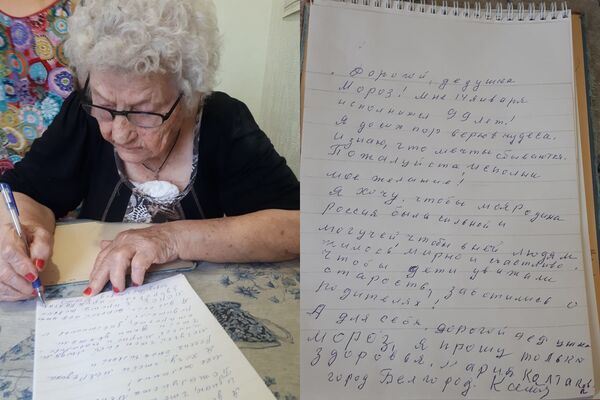 Дорогой, дедушка
Мороз! Мне 14 января
исполнилось 92 лет!
Я до сих пор верю в чудеса.
и знаю, что мечты сбываются.
Пожалуйста, исполни
мое желание!
Я хочу, чтобы моя Родина
Россия была сильной и
могучей чтобы в ней людям
жилось мирно и счастливо.
Чтобы дети уважали
старость, заботились о
родителях,
А для себя, дорогой дедушка
Мороз, я прошу только
здоровья. Мария
город Белгород.